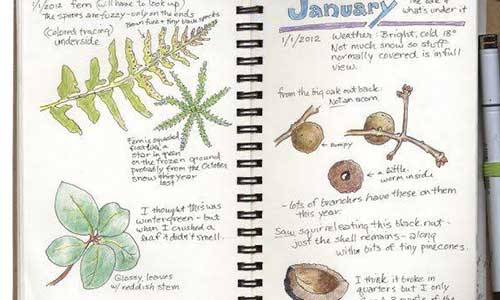 1/1/2012 fern (will have to look up)
The spores are fuzzy - only on the ends
Brown funk + tiny black spots
(Colored tracing)
underside
Fern is squashed
flat like a
star in green
on the frozen ground
probably from the October
snows this year
last
I thought this was
wintergreen - but
when I crushed a
leaf it didn't smell.
Glossy leaves
w/ reddish stem
January
what's under it
1/1/2012 Weather: Bright, cold 18°
Not much snow so stuff
normally covered is in full
view.
from the big oak out back:
Not an acorn.
← bumpy
← a little
worm inside
- lots of branches have these on them
this year.
Saw squirrel eating this black nut -
just the shell remains - along
with bits of tiny pinecones.
I think it broke in
quarters but I only